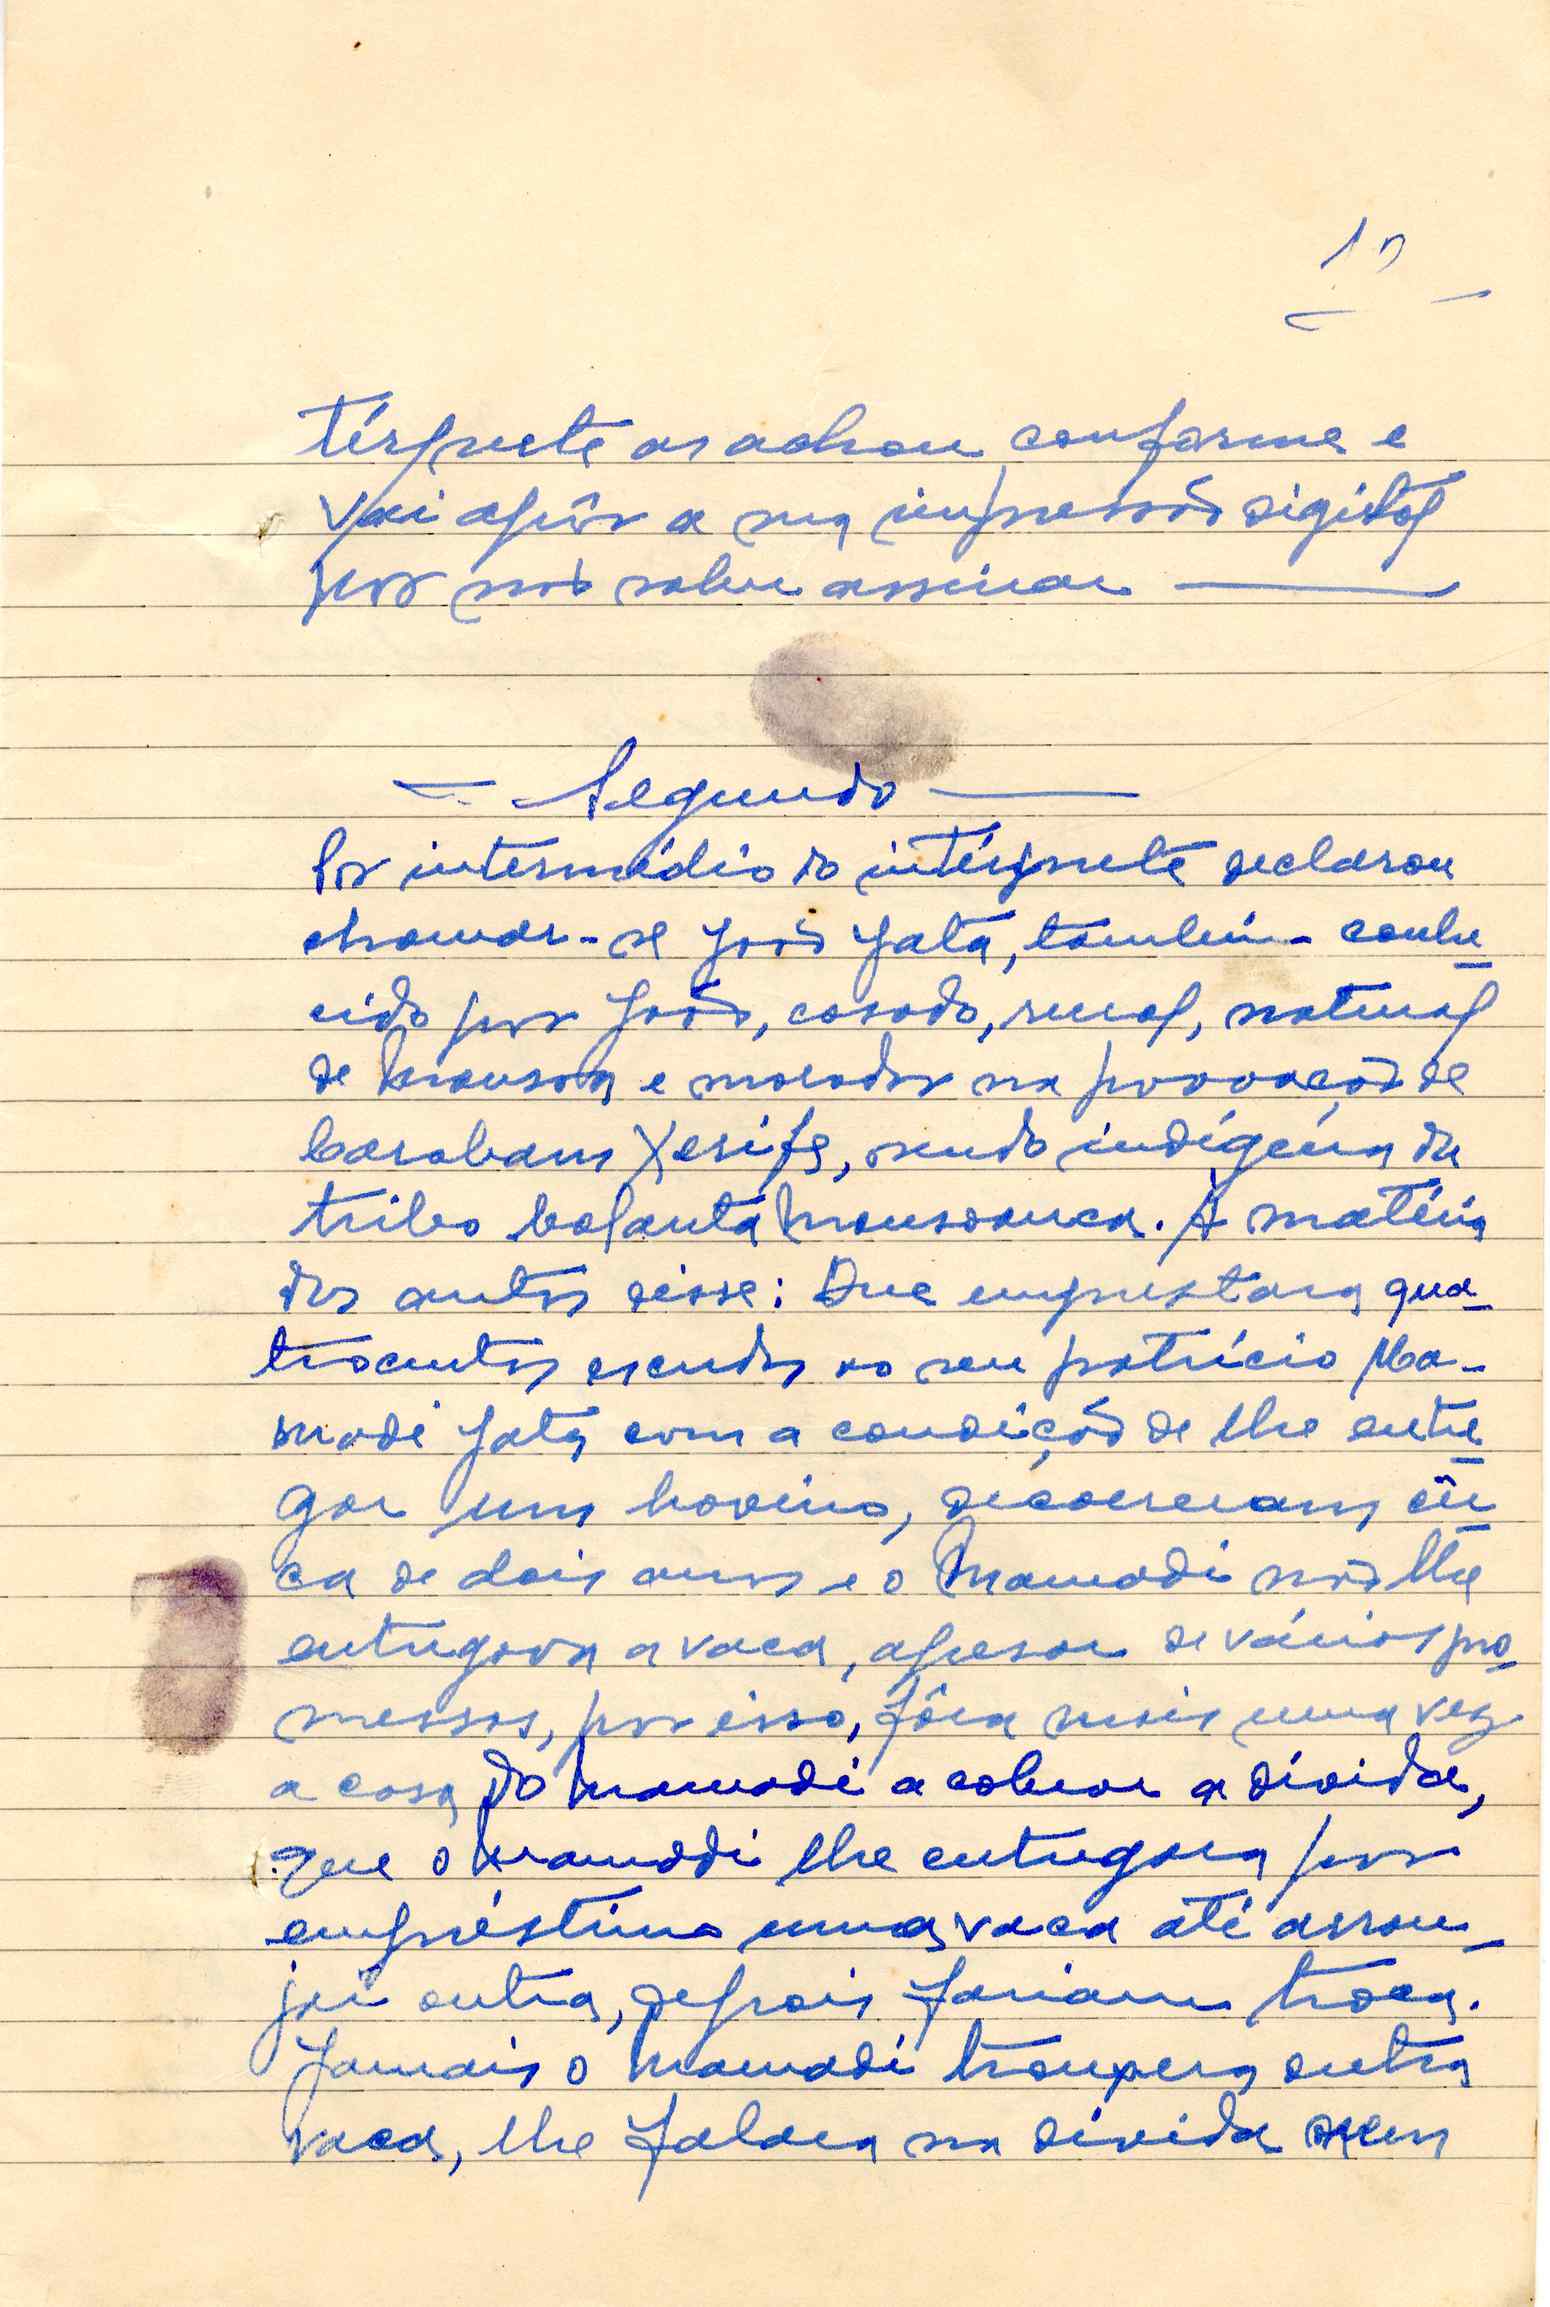 térprete as achou conforme e
vai apôr a sua impressão digital
por não saber assinar
Segundo
Por intermédio do intérprete declarou
chamar-se João Jatá, também conhe
cido por João, casado, rural, natural
de Mansoa e morador na povoação de
Carabam Xerife, sendo indígena da
tribo balanta Mansoanca. À matéria
dos autos disse: Que emprestara qua-
trocentos escudos ao seu patrício Ma-
madi Jatá com a condição de lhe entre
gar um bovino, decorreram cêr
ca de dois anos e o Mamadi não lhe
entregava a vaca, apesar de várias pro-
messas, por isso, fôra mais uma vez
a casa do Mamadi a cobrar a dívida,
que o Mamadi lhe entregara por
empréstimo uma vaca até arran-
jar outra, depois fariam troca.
Jamais o Mamadi trouxera outra
vaca, lhe falara na dívida